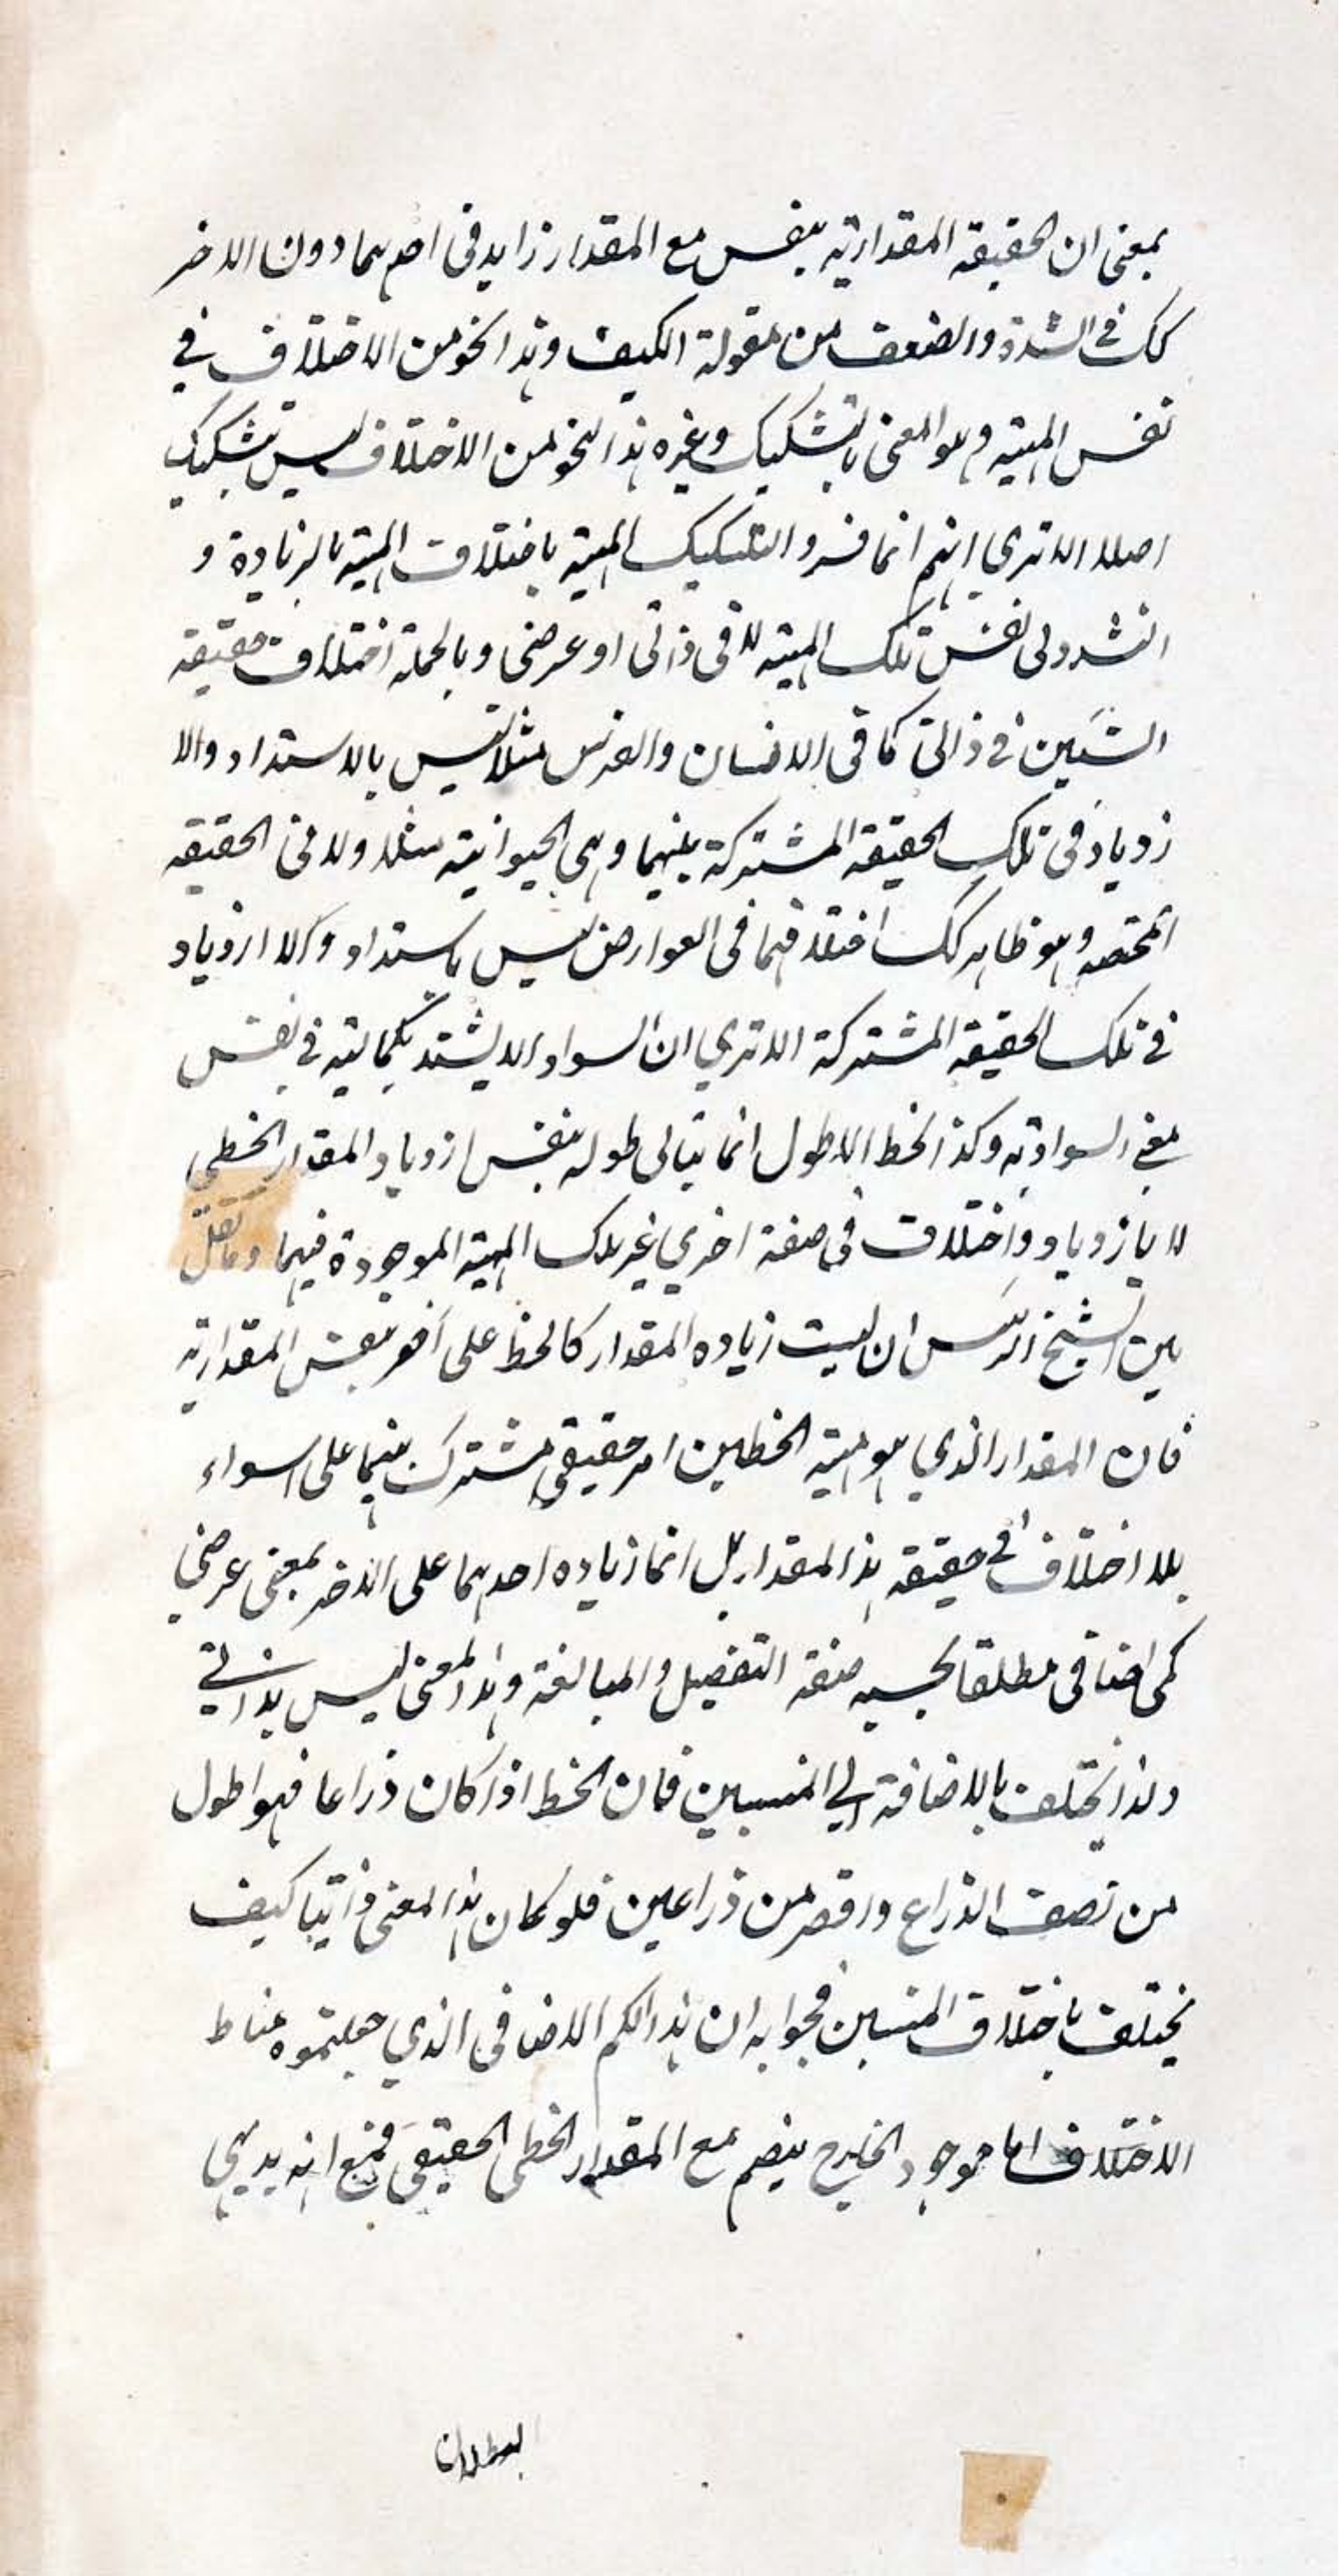 بمعنى ان الحقيقه المقداريه بنفس مع المقدار زايد فى احدهما دون الاخر
كك فى الشدة والضعف من مقولة الكيف وهذا النحو من الاختلاف فى
نفس المهيته وهو المعنى بالتشكيك وغيره هذا النحو من الاختلاف ليس تشكيك
اصلا الا ترى انهم انما فسروا التشكيك المهية باختلاف المهية بالزيادة و
الشدد لى نفس تلك المهيته لا فى ذاتى او عرضى وبالجملة اختلاف حقيقه
الشئين فى ذاتى كما فى الانسان والفرس مثلا ليس بالاستداد والا
زدياد فى تلك الحقيقه المشتركة بينهما وهى الحيوانيته مثلا ولا فى الحقيقه
المختصه وهو ظاهر كك اختلافهما فى العوارض ليس باستداد ولا ازدياد
فى تلك الحقيقه المشتركة الا ترى ان السواد الا يشتد بكماليته فى نفس
معنى السواديه وكذا الخط الاطول انما يتالى طوله بنفس ازدياد المقدار الخطى
لا بازدياد واختلاف فى صفة اخرى غير تلك المهية الموجودة فيهما وما نقل
بين الشيخ الرئيس ان ليست زياده المقدار كالخط على آخر بنفس المقداريه
فان المقدار الذى هو مهية الخطين امر حقيقى مشترك بينهما على اسواء
بلا اختلاف فى حقيقه هذا المقدار بل انما زياده احدهما على الاخر بمعنى عرضى
كمى اضافى مطلقا بحسبه صنفة التفضيل والمبالغة وهذا المعنى ليس بذاتى
ولذا يختلف بالاضافة الى المنسبين فان الخط اذا كان ذراعا فهو اطول
من نصف الذراع واقصر من ذراعين فلو كان هذا المعنى ذاتيا كيف
يختلف باختلاف المنسبين فجوابه ان هذا الكم الاضافى الذى جعلتموه مناط
الاختلاف اما موجود الخارج ينضم مع المقدار الخطى الحقيقى فمع انه بديهى
البطلان